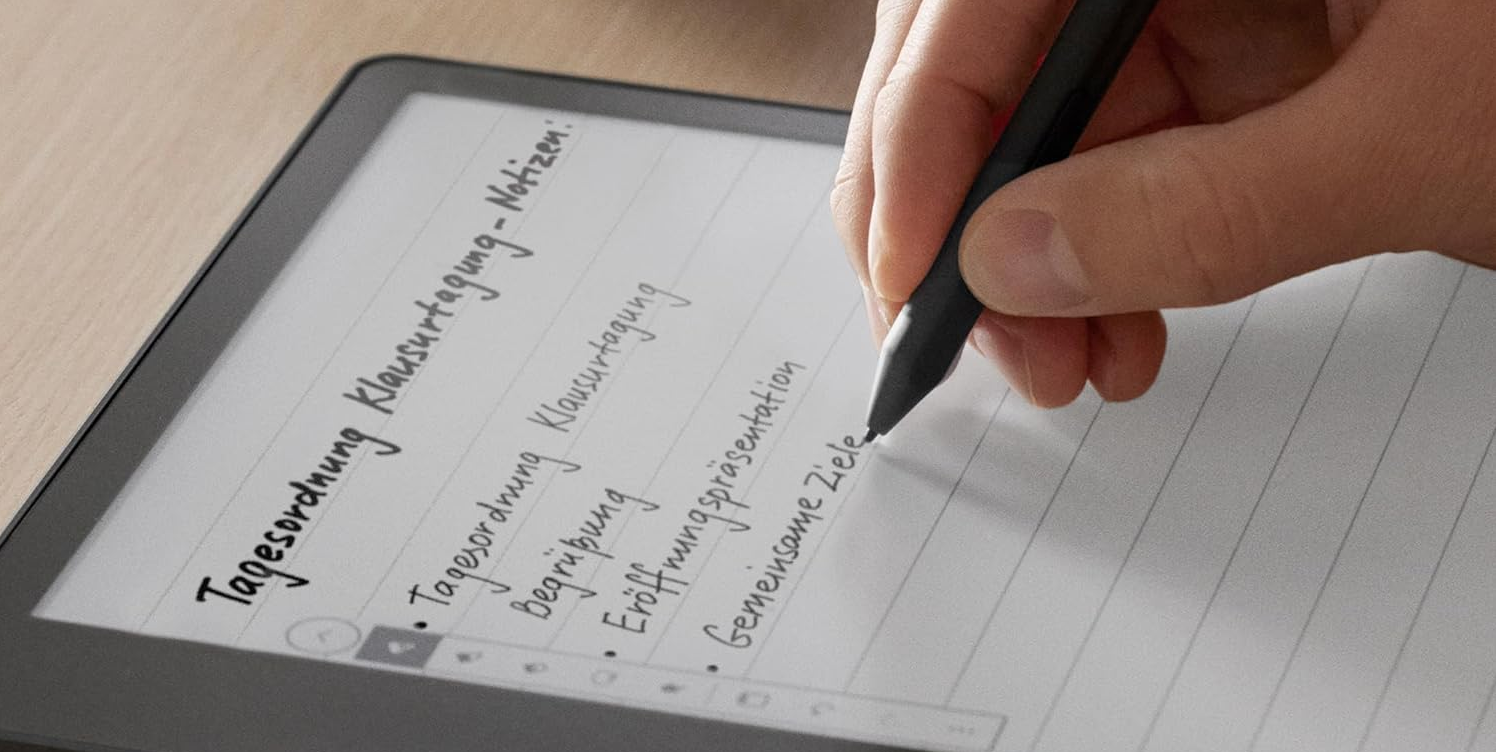 Tagesordnung Klausurtagung - Notizen:
• Tagesordnung Klausurtagung
Begrüßung
• Eröffnungspräsentation
• Gemeinsame Ziele